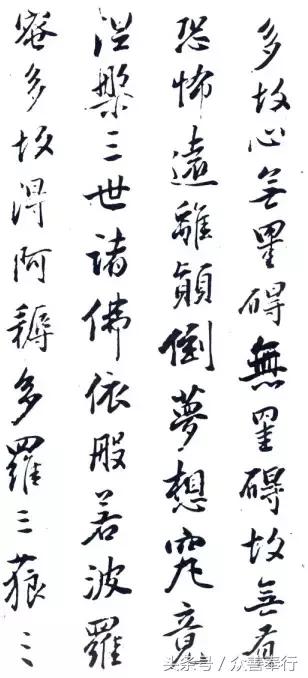 多故心無罣碍無罣碍故無有
恐怖遠離顛倒夢想究竟
涅槃三世諸佛依般若波羅
蜜多故得阿耨多羅三藐三
头条号 / 众善奉行